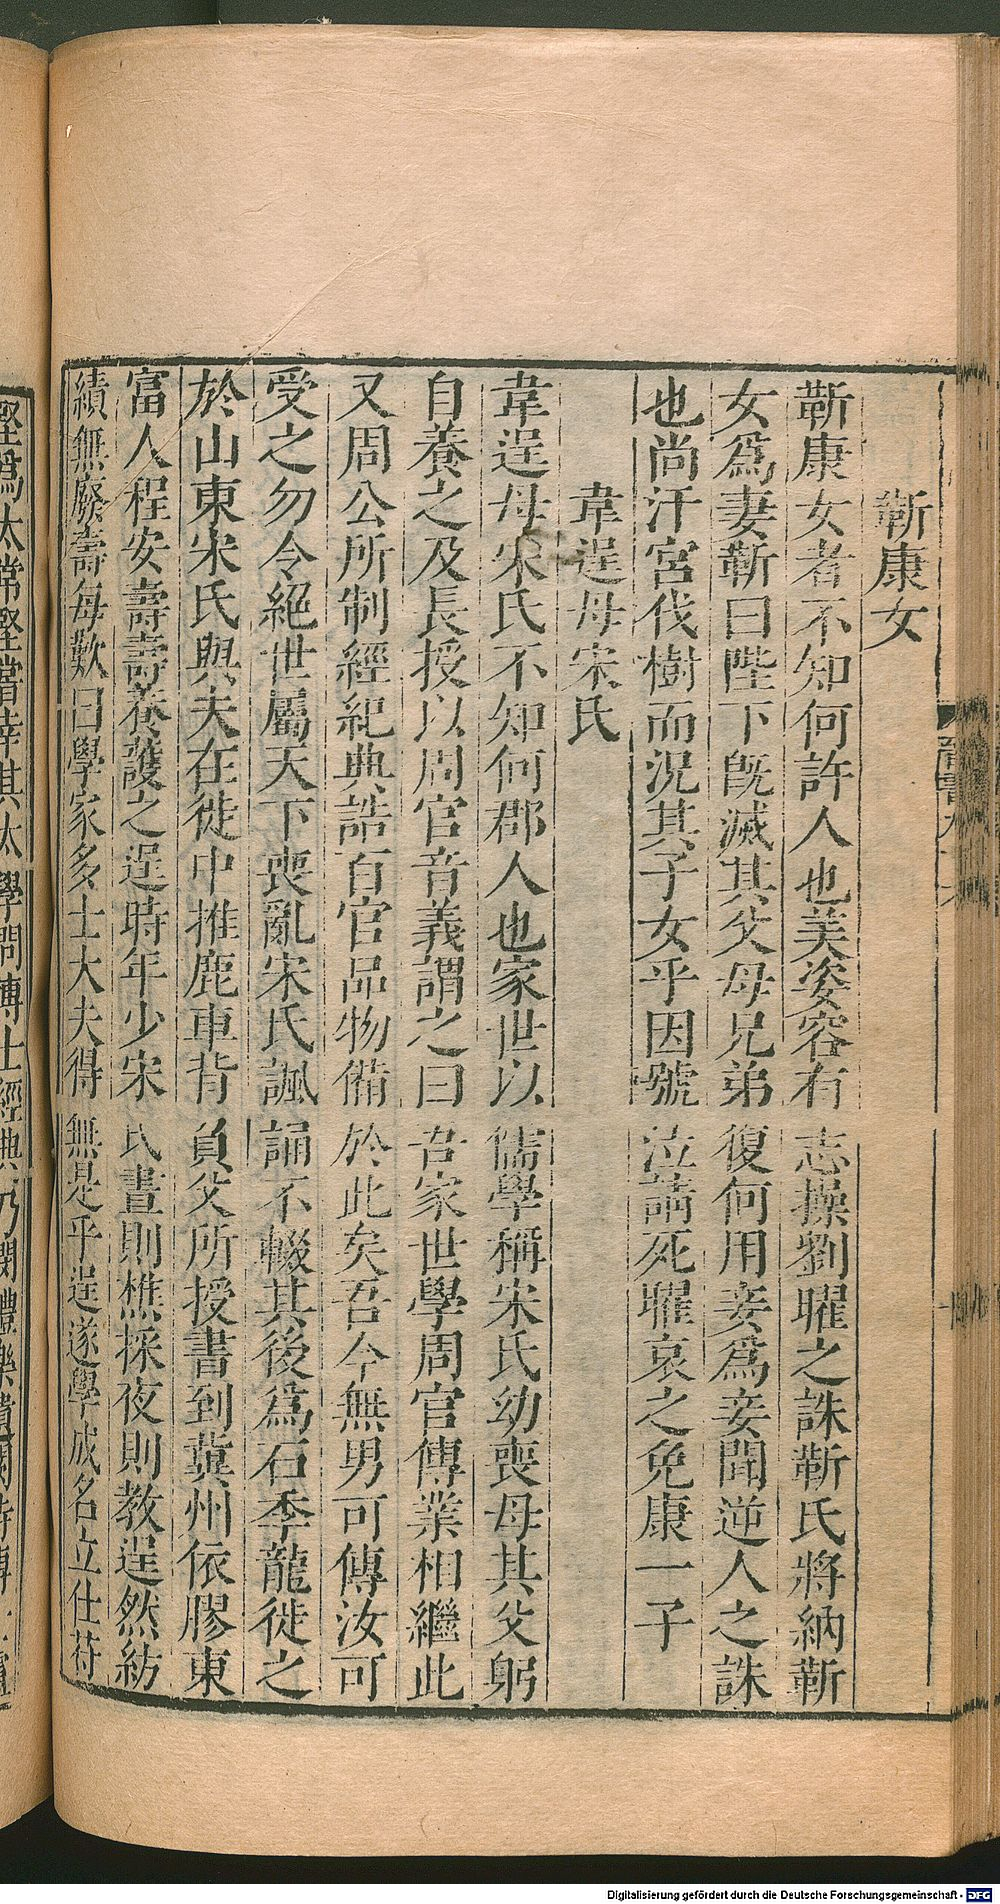 靳康女
靳康女者不知何許人也美姿容有志操劉曜之誅靳氏將納靳
女爲妻靳曰陛下旣滅其父母兄弟復何用妾爲妾聞逆人之誅
也尚汙宮伐樹而況其子女乎因號泣請死曜哀之免康一子
韋逞母宋氏
韋逞母宋氏不知何郡人也家世以儒學稱宋氏幼喪母其父躬
自養之及長授以周官音義謂之曰吾家世學周官傳業相繼此
又周公所制經紀典誥百官品物備於此矣吾今無男可傳汝可
受之勿令絕世屬天下喪亂宋氏諷誦不輟其後爲石季龍徙之
於山東宋氏與夫在徙中推鹿車背負父所授書到冀州依膠東
富人程安壽壽養護之逞時年少宋氏晝則樵採夜則教逞然紡
績無廢壽每歎曰學家多士大夫得無是乎逞遂學成名立仕苻
堅爲太常堅嘗幸其太學問博士經典乃閔禮樂遺闕時博士盧
Digitalisierung gefördert durch die Deutsche Forschungsgemeinschaft - DFG